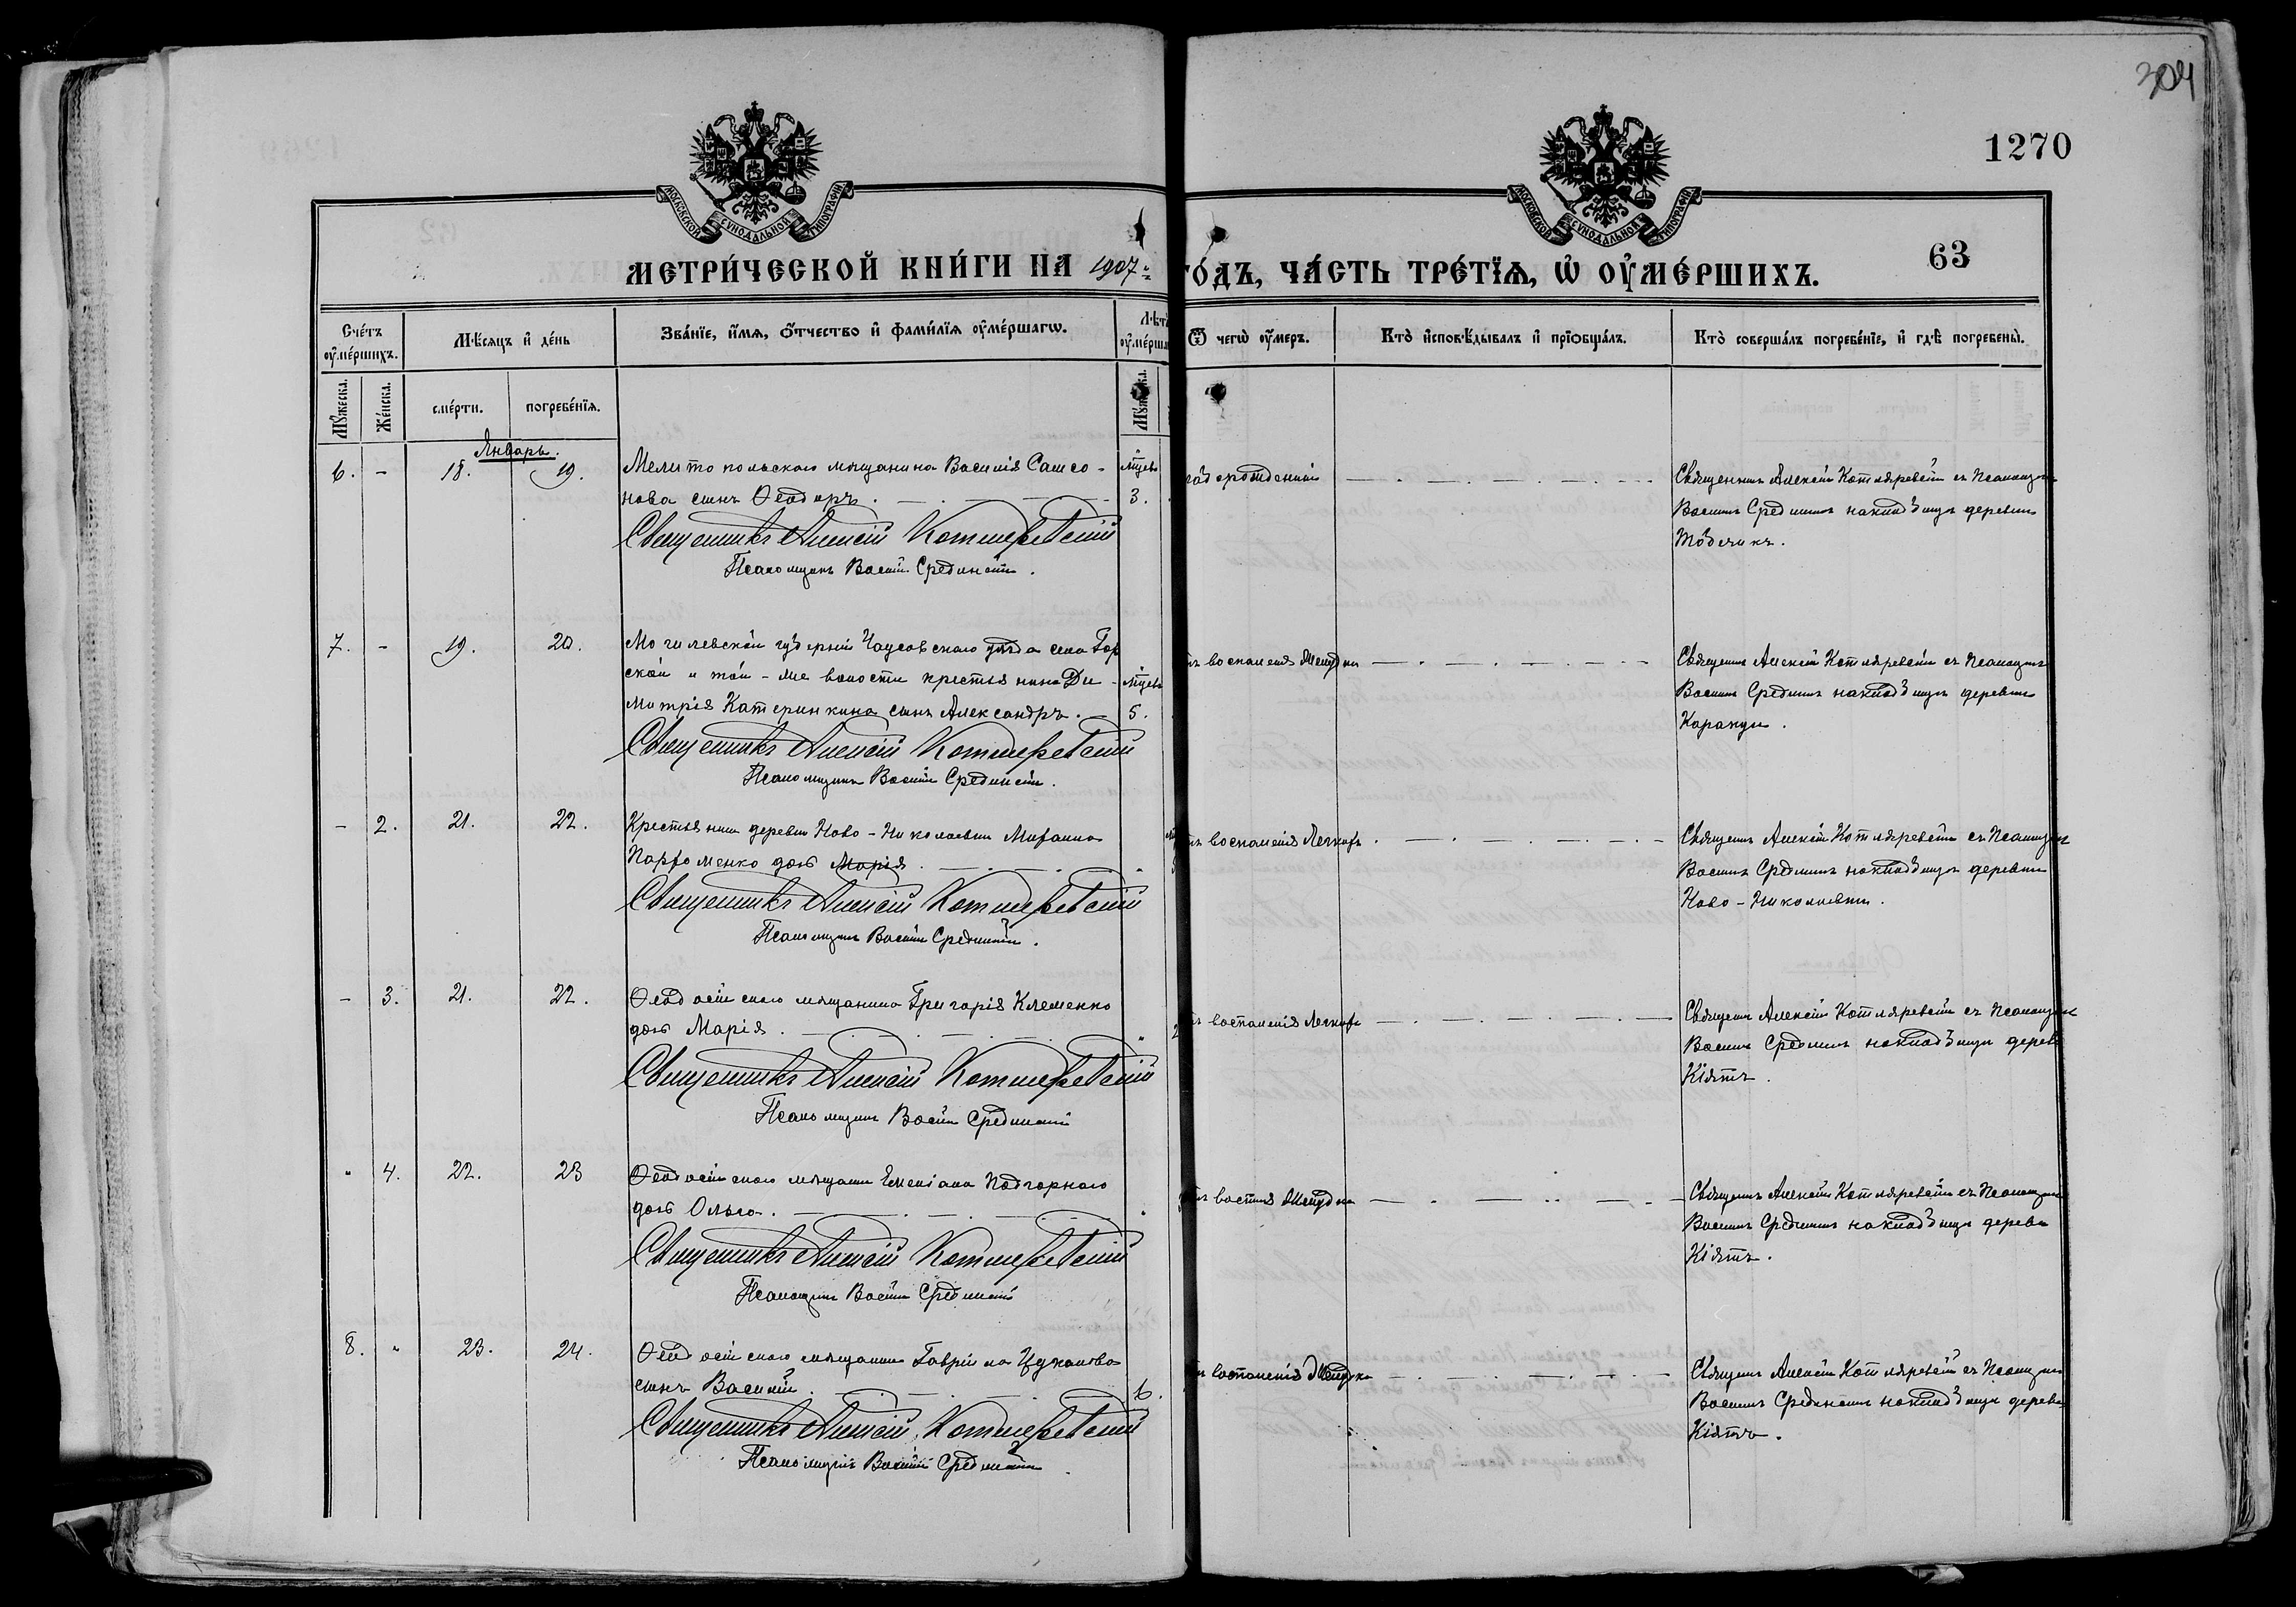 304
1270
МОСКОВСКОЙ СѴНОДАЛЬНОЙ ТИПОГРАФІИ
МОСКОВСКОЙ СѴНОДАЛЬНОЙ ТИПОГРАФІИ
МЕТРИ́ЧЕСКОЙ КНИ́ГИ НА 1907 го́дъ, ЧА́СТЬ ТРЕ́ТЇѦ, Ѡ҆ ОУ҆МЕ́РШИХЪ.
63
Сче́тъ оу҆ме́ршихъ.
Мѣ́сяцъ и҆ де́нь
Зва́нїе, и҆́мѧ, ѻ҆́тчество и҆ фами́лїѧ оу҆ме́ршагѡ.
Ѿ чегѡ̀ оу҆́меръ.
Кто̀ и҆сповѣ́дывалъ и҆ прїѡбща́лъ.
Кто̀ соверша́лъ погребе́нїе, и҆ гдѣ̀ погребены̀.
Мꙋ́жеска.
Же́нска.
сме́рти.
погребе́нїѧ.
Мꙋ́жеска.
Январь.
6. - 18. 19.
Мелитопольскаго мѣщанина Василія Самсо-
нова сынъ Ѳеодоръ.
3.
Священникъ Алексій Котляревскій
Псаломщикъ Василій Срединскій.
Священникъ Алексій Котляревскій съ Псаломщ
Василіемъ Срединскимъ на кладбищѣ деревни
7. - 19. 20.
Могилевской губерніи Чаусовскаго уѣзда села Гор
ской и той-же волости крестьянина Ди-
митрія Катеринкина сынъ Александръ.
5.
Священникъ Алексій Котляревскій
Псаломщикъ Василій Срединскій.
воспаленія желудка
Священникъ Алексій Котляревскій съ Псаломщ
Василіемъ Срединскимъ на кладбищѣ деревни
- 2. 21. 22.
Крестьянина деревни Ново-Николаевки
Парфоменко дочь Марія.
Священникъ Алексій Котляревскій
Псаломщикъ Василій Срединскій.
воспаленія легкихъ
Священникъ Алексій Котляревскій съ Псаломщ
Василіемъ Срединскимъ на кладбищѣ деревни
Ново-Николаевки.
- 3. 21. 22.
Ѳеодосійскаго мѣщанина Григорія Клеменко
дочь Марія.
Священникъ Алексій Котляревскій
Псаломщикъ Василій Срединскій
воспаленія легкихъ
Священникъ Алексій Котляревскій съ Псаломщ
Василіемъ Срединскимъ на кладбищѣ дерев
Кіятъ.
" 4. 22. 23
Ѳеодосійскаго мѣщанина Емеліана Подгорнаго
дочь Ольга.
Священникъ Алексій Котляревскій
Псаломщикъ Василій Срединскій
желудка
Священникъ Алексій Котляревскій съ Псаломщ
Василіемъ Срединскимъ на кладбищѣ дерев
Кіятъ.
8. " 23. 24.
Ѳеодосійскаго мѣщанина Гавріила
сынъ Василій.
6.
Священникъ Алексій Котляревскій
Псаломщикъ Василій Срединскій
воспаленія желудка
Священникъ Алексій Котляревскій съ Псаломщ
Василіемъ Срединскимъ на кладбищѣ дерев
Кіятъ.